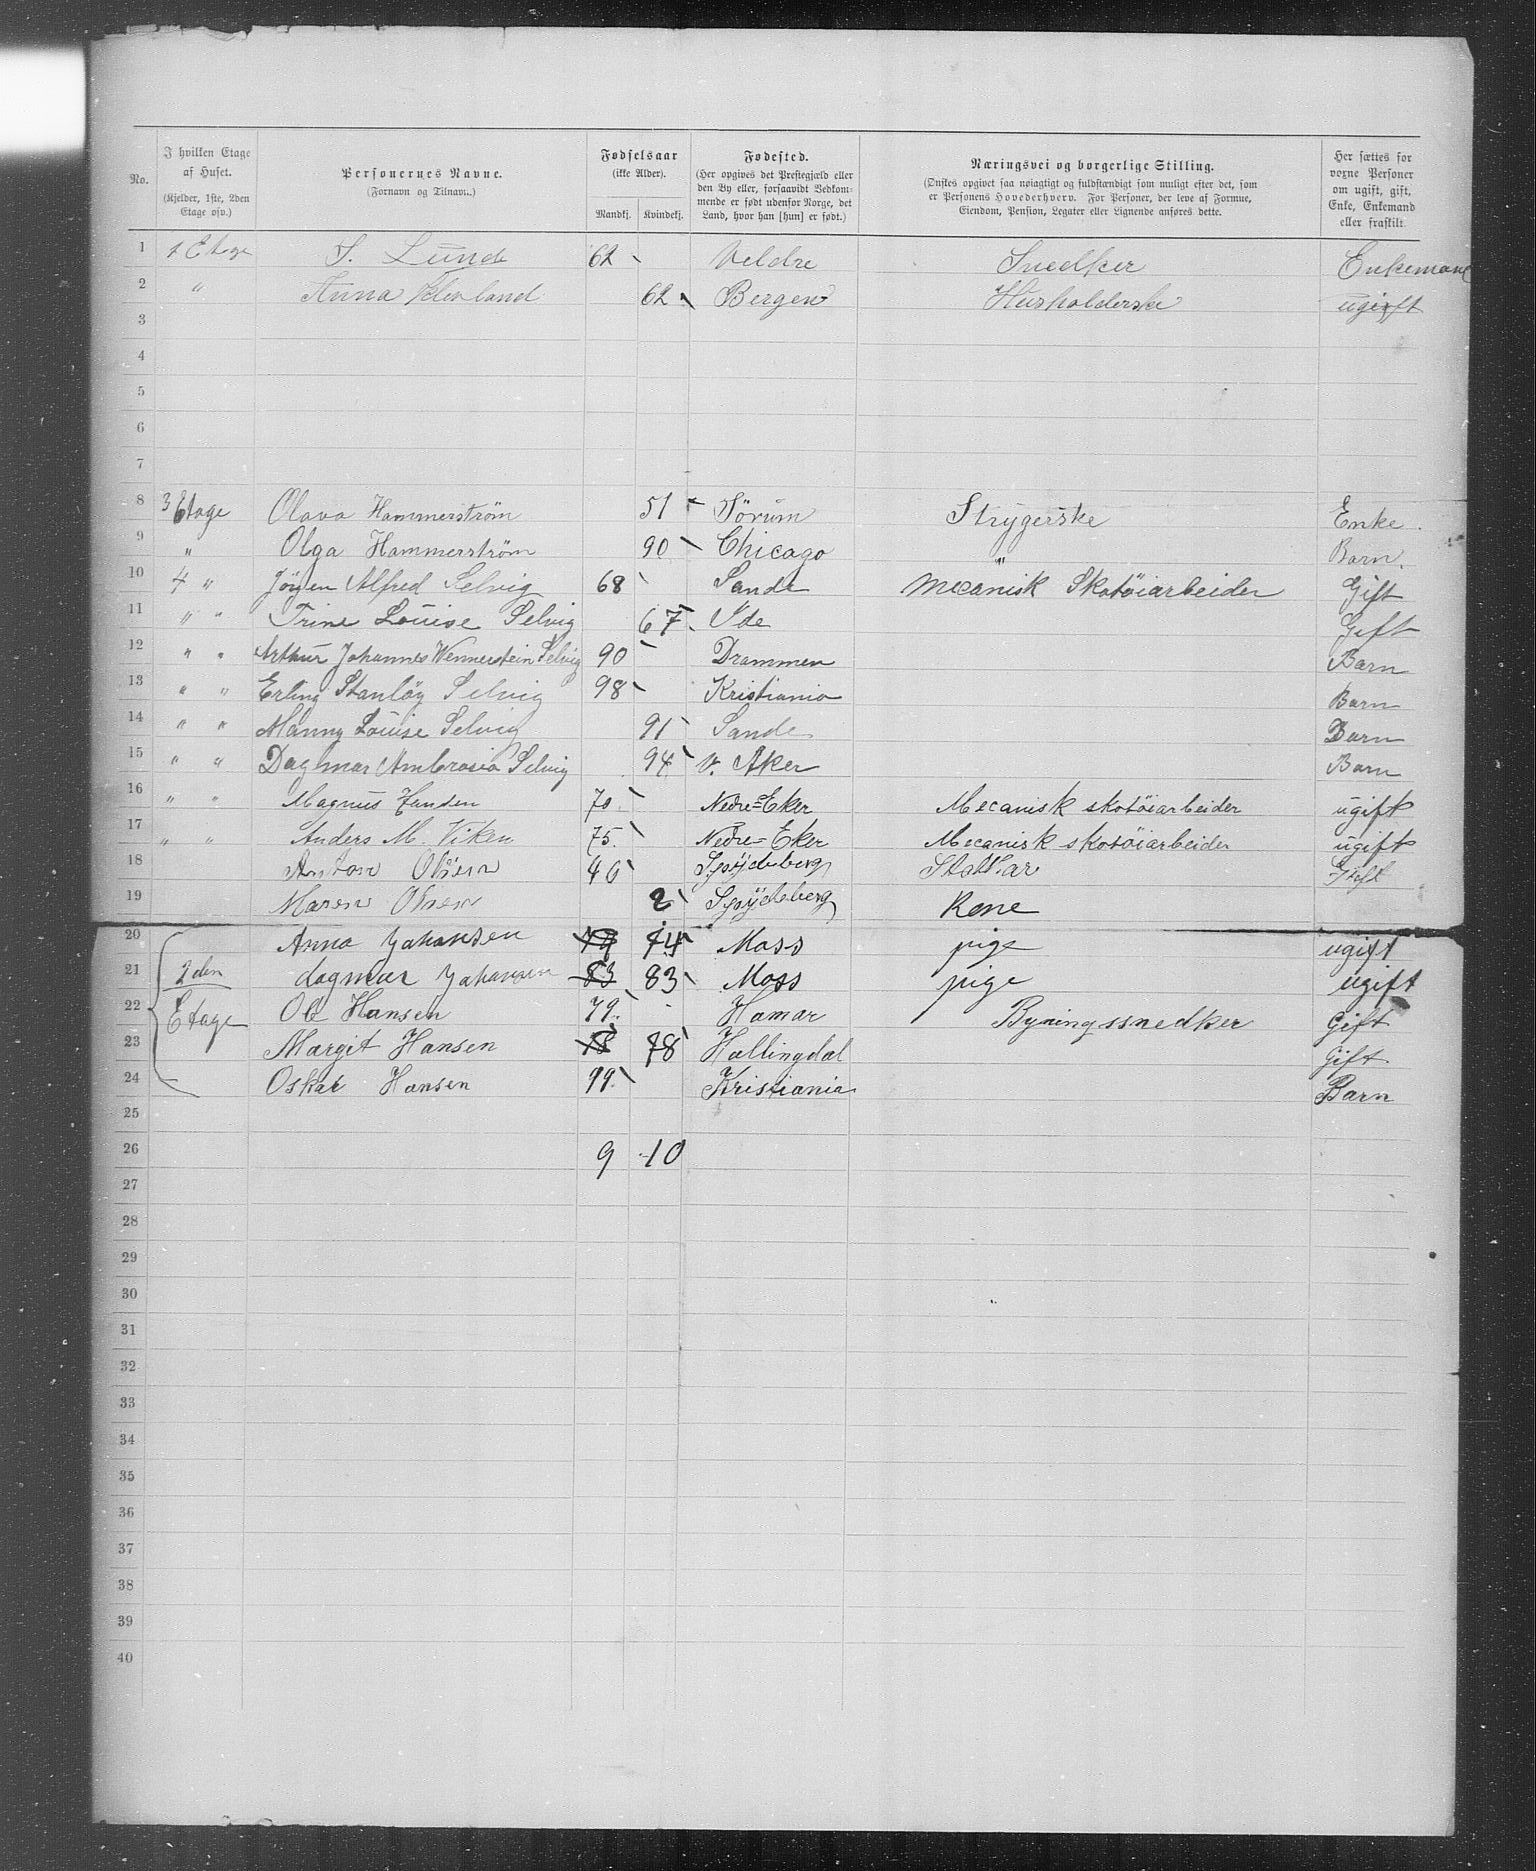 No. | I hvilken Etage af Huset. (Kjelder, 1ste, 2den Etage osv.) | Personernes Navne. (Fornavn og Tilnavn.) | Fødselsaar (ikke Alder). Mandkj. | Kvindekj. | Fødested. (Her opgives det Prestegjæld eller den By eller, forsaavidt Vedkommende er født udenfor Norge, det Land, hvor han [hun] er født.) | Næringsvei og borgerlige Stilling. (Ønskes opgivet saa nøiagtigt og fuldstændigt som muligt efter det, som er Personens Hovederhverv. For Personer, der leve af Formue, Eiendom, Pension, Legater eller Lignende anføres dette. | Her sættes for voxne Personer om ugift, gift, Enke, Enkemand eller fraskilt.
1 1 Etage S. Lunde 62 Veldre Snedker Enkemand
2 " Anna Klevland 62 Bergen Husholderske ugift
3
4
5
6
7
8 3 Etage Olava Hammerström 51 Sörum Strygerske Enke.
9 " Olga Hammerström 90 Chicago " Barn.
10 4 " Jörgen Alfred Selvig 68 Sande Mecanisk Skotöiarbeider Gift
11 " " Trine Louise Selvig 67 Ide Gift
12 " " Arthur Johannes Wennerstein Selvig 90 Drammen Barn
13 " " Erling Stanley Selvig 98 Kristiania Barn
14 " " Manny Louise Selvig 91 Sande Barn
15 " " Dagmar Ambrosia Selvig 94 V. Aker Barn
16 " " Magnus 70 Nedre=Eker Mecanisk skotöiarbeider ugift
17 " " Anders M. Viken 75. Nedre=Eker Mecanisk skotöiarbeider ugift
18 Anton Olsen 46 Spydeberg Gift
19 Maren Olsen 2 Spydeberg Kone
20 Anna Johansen 74 74 Moss pige ugift
21 2den dagmar Johansen 83 83 Moss pige ugift
22 Etage Ole Hansen 79. Hamar Byningssnedker Gift
23 Margit Hansen 78 78 Hallingdal Gift
24 Oskar Hansen 99. Kristiania Barn
25
26 9 10
27
28
29
30
31
32
33
34
35
36
37
38
39
40